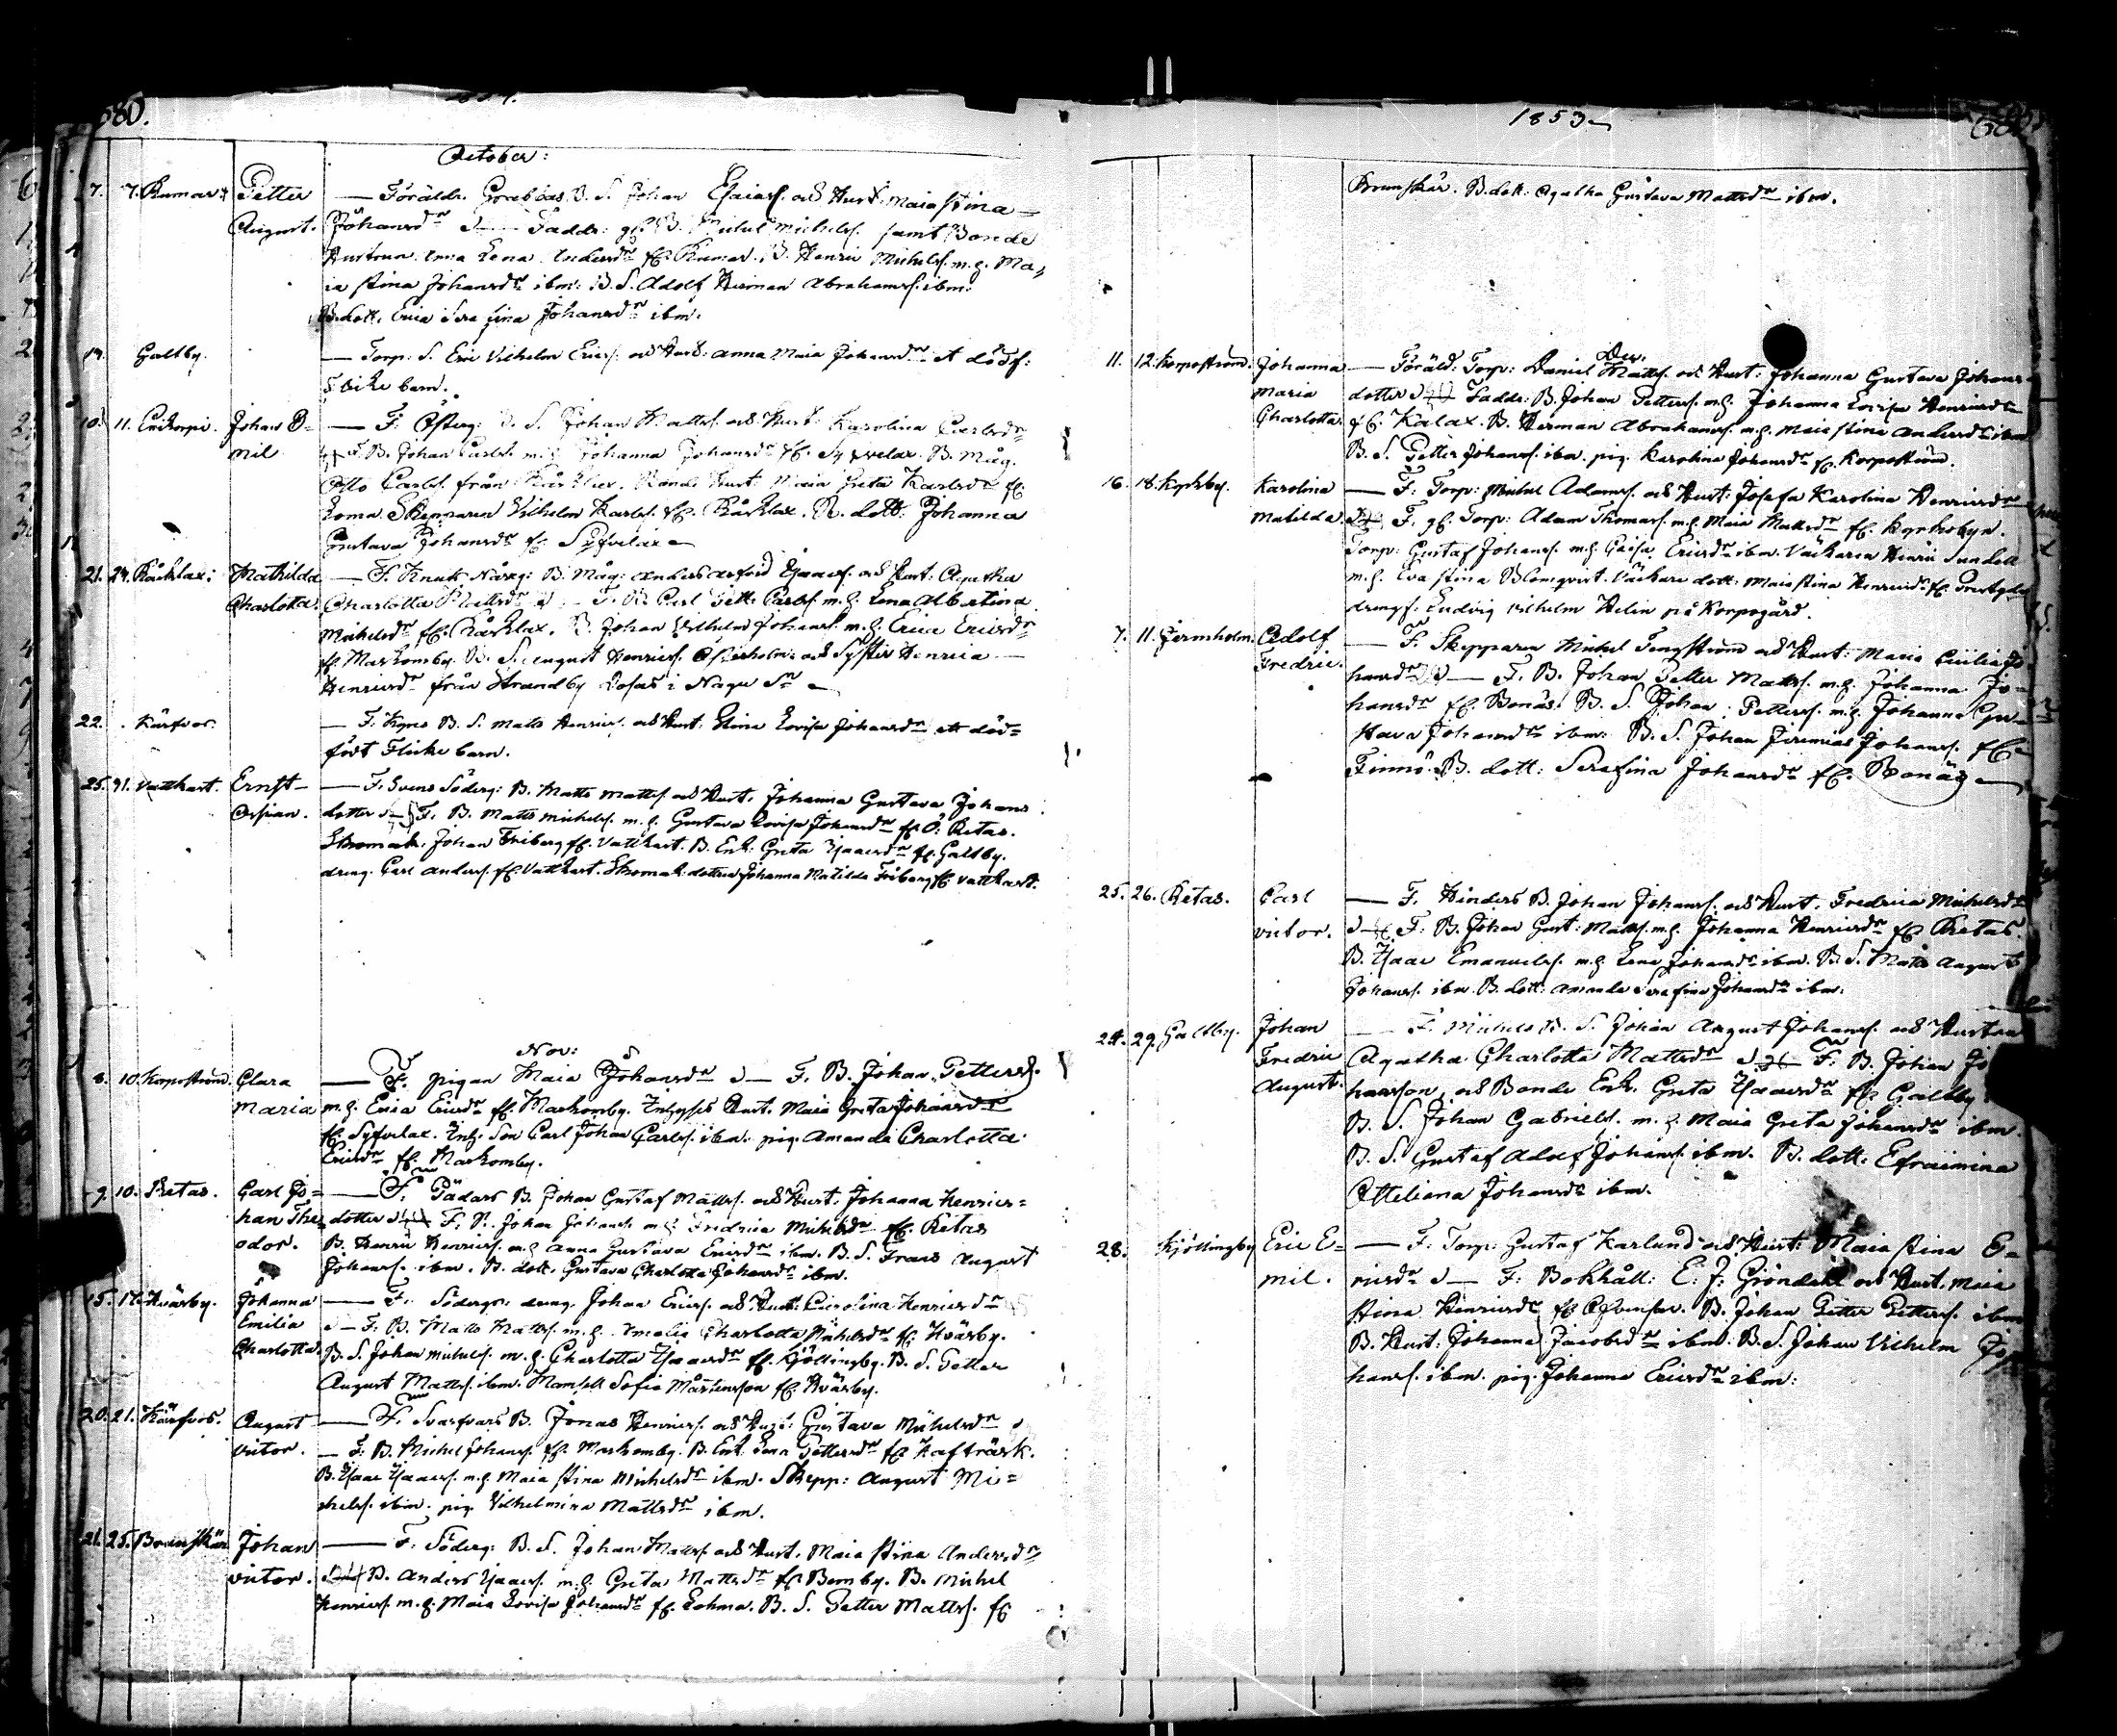 680.
October:
7. 7. Rumar. Petter — Föräldr. Grobböas B. S. Johan Esaiass. och Hust. Maia Stina
August. Johansdr — Faddr: fr. B. Michel Michelss. samt Bonde
Hustrun Lena Andersdr fr. Rumar. B. Henric Michelss. m.h. Ma,
ia Stina Johansdr ibm: B. S. Adolf Herman Abrahamss. ibm:
B. dott. Erica Serafina Johansdr ibm.
19. Galtby. — Torp. S. Eric Vilhelm Ericss. och Hust: Anna Maia Johansdr et dödf:
Flicke barn.
10. 11. Johan E= — F: Österg: B. S. Johan Mattss. och Hust: Karolina Carlsdr
mil F. B. Johan Carlss. m.h. Johanna Johansdr fr. Syfvelax. B. Måg.
Otto Carlss. från Rårklax. Bonde Hust: Maia Greta Karlsdr fr.
Loma. Skepparen Vilhelm Karlss. fr. Rårklax. B. dott: Johanna
Gustava Johansdr fr. Syfvelax —
21. 24. Rårklax: Mathilda — F. Knuts Norrg: B. Måg: Anders Isaacss. och Hust: Agatha
Charlotta. Charlotta Mattsdr F. B. Carl Pett: Carlss. m.h. Lena Albertina
Michelsdr fr. Rårklax. B. Johan Vilhelm Johanss. m.h. Erica Ericsdr
fr. Markomby. B. S. August Henricss. Österholm och Syster Henrica —
Henricsdr från Strandby i Nagu Sn —
22. Kärfvos. — F: B. S. Matts Henricss. och Hust. Stina Lovisa Johansdr ett död=
födt Flicke barn.
25. 31. Vattkast. Ernst — F. Svens Söderg: B. Matts Mattss. och Hust. Johanna Gustava Johans
Ossian. dotter F. B. Matts Michelss. m.h. Gustava Lovisa Johansdr fr. Ö. Retas.
Skomak. Johan Friberg fr. Vattkast. B. Enk: Greta Isaacsdr fr. Galtby.
dreng. Carl Anderss. fr. Vattkast. Skomak. dottren Johanna Matilda Friberg fr. Vattkast.
Nov:
8. 10. Korpoström. Clara — F. pigan Maia Johansdr — F. B. Johan Petterss.
Maria m.h. Erica Ericsdr fr. Markomby. Inhyses Hust. Maia Greta Johansdr
fr. Syfvelax. Inh. Son Carl Johan Carlss. ibm. pig. Amanda Charlotta
Ericsdr fr. Markomby.
9. 10. Retas. Carl Jo= — F. Pädars B. Johan Gustaf Mattss. och Hust. Johanna Henrics=
han The= dotter F. B. Johan Johanss. m.h. Fredrica Michelsdr fr. Retas
odor. B. Henric Henricss. m.h. Anna Gustava Ericsdr ibm. B. S. Frans August
Johanss. ibm. B. dott. Gustava Charlotta Johansdr ibm.
15. 17. Hvärby. Johanna — F. Södergs: dreng. Johan Ericss. och Hust. Carolina Henricsdr
Emilia — F. B. Matts Mattss. m.h. Amalia Charlotta Michelsdr fr. Hvärby.
Charlotta. B. S. Johan Michelss. m.h. Charlotta Isaacsdr fr. Kjöllingby. B. S. Petter
August Mattss. ibm. Mamsell Sofia Mårtenson fr. Hvärby.
20. 21. Kärfvos. August — F. Svarfvars B. Jonas Henricss. och Hust: Gustava Michelsdr
Victor. — F. B. Michel Johanss. fr. Markomby. B. Enk. Lena Pettersdr fr. Kafträsk.
B. Isaac Isaacss. m.h. Maia Stina Michelsdr ibm. Skepp: August Mi=
chelss. ibm. pig. Vilhelmina Mattsdr ibm.
21. 25. Johan — F. Söderg: B. S. Johan Mattss. och Hust. Maia Stina Andersdr
Victor. B. Anders Isaacss. m.h. Greta Mattsdr fr. Bemby. B. Michel
Henricss. m.h. Maia Lovisa Johansdr fr. Lohma. B. S. Petter Mattss. fr.
1853
Brunskär. B. dott: Agatha Gustava Mattsdr ibm.
Dec.
11. 12. Korpoström. Johanna — Föräld: Torp: Daniel Mattss. och Hust: Johanna Gustava Johans
Maria dotter Faddr: B. Johan Petterss. m.h. Johanna Lovisa Henricsdr
Charlotta. fr. Kalax. B. Herman Abrahamss. m.h. Maia Stina Andersdr ibm
B. S. Petter Johanss. ibm. pig. Karolina Johansdr fr. Korpoström.
16. 18. Kyrkby. Karolina — F: Torp: Michel Adamss. och Hust: Josefa Karolina Henricsdr
Matilda. F. fr. Torp: Adam Thomass. m.h. Maia Mattsdr fr. Kyrkobyn.
Torp: Gustaf Johanss. m.h. Caisa Ericsdr ibm. Väckaren Henric Sundell
m.h. Eva Stina Blomqvist. Väckare dott: Maia Stina Henricsdr fr.
drengs. Ludvig Vilhelm Helin på Korpogård.
7. 11. Jermholm. Adolf — F. Skepparen Michel Tengström och Hust: Maria Cecilia Jo
Fredric. hansdr — F. B. Johan Petter Mattss. m.h. Johanna Jo=
hansdr fr. Bonäs. B. S. Johan Petterss. m.h. Johanna Gu=
stava Johansdr ibm: B. S. Johan Jeremias Johanss. fr.
Finnö. B. dott: Serafina Johansdr fr. Bonäs —
25. 26. Retas. Carl — F. Hinders B. Johan Johanss. och Hust. Fredrica Michelsdr
Victor. F: B. Johan Gust: Mattss. m.h. Johanna Henricsdr fr. Retas.
B. Isaac Emanuelss. m.h. Lena Johansdr ibm. B. S. Matts August
Johanss. ibm. B. dott: Amanda Serafina Johansdr ibm.
24. 29. Galtby. Johan — F. Michels B. S. Johan August Johanss. och Hustrun
Fredric Agatha Charlotta Mattsdr F: B. Johan Jo
August. hansson och Bonde Enk. Greta Isaacsdr fr. Galtby
B. S. Johan Gabrielss. m.h. Maia Greta Johansdr ibm.
B. S. Gustaf Adolf Johanss. ibm. B. dott. Efraimina
Otteliana Johansdr ibm.
28. Kjöllingby Eric E= — F: Torp: Gustaf Karlund och Hust: Maia Stina E=
mil. ricsdr — F: Bokhåll: E. J. Gröndahl och Hust. Maia
Stina Henricsdr fr. B. Johan Petter Petterss. ibm
B. Hust: Johanna Jacobsdr ibm: B. S. Johan Vilhelm Jo
hanss. ibm. pig. Johanna Ericsdr ibm: